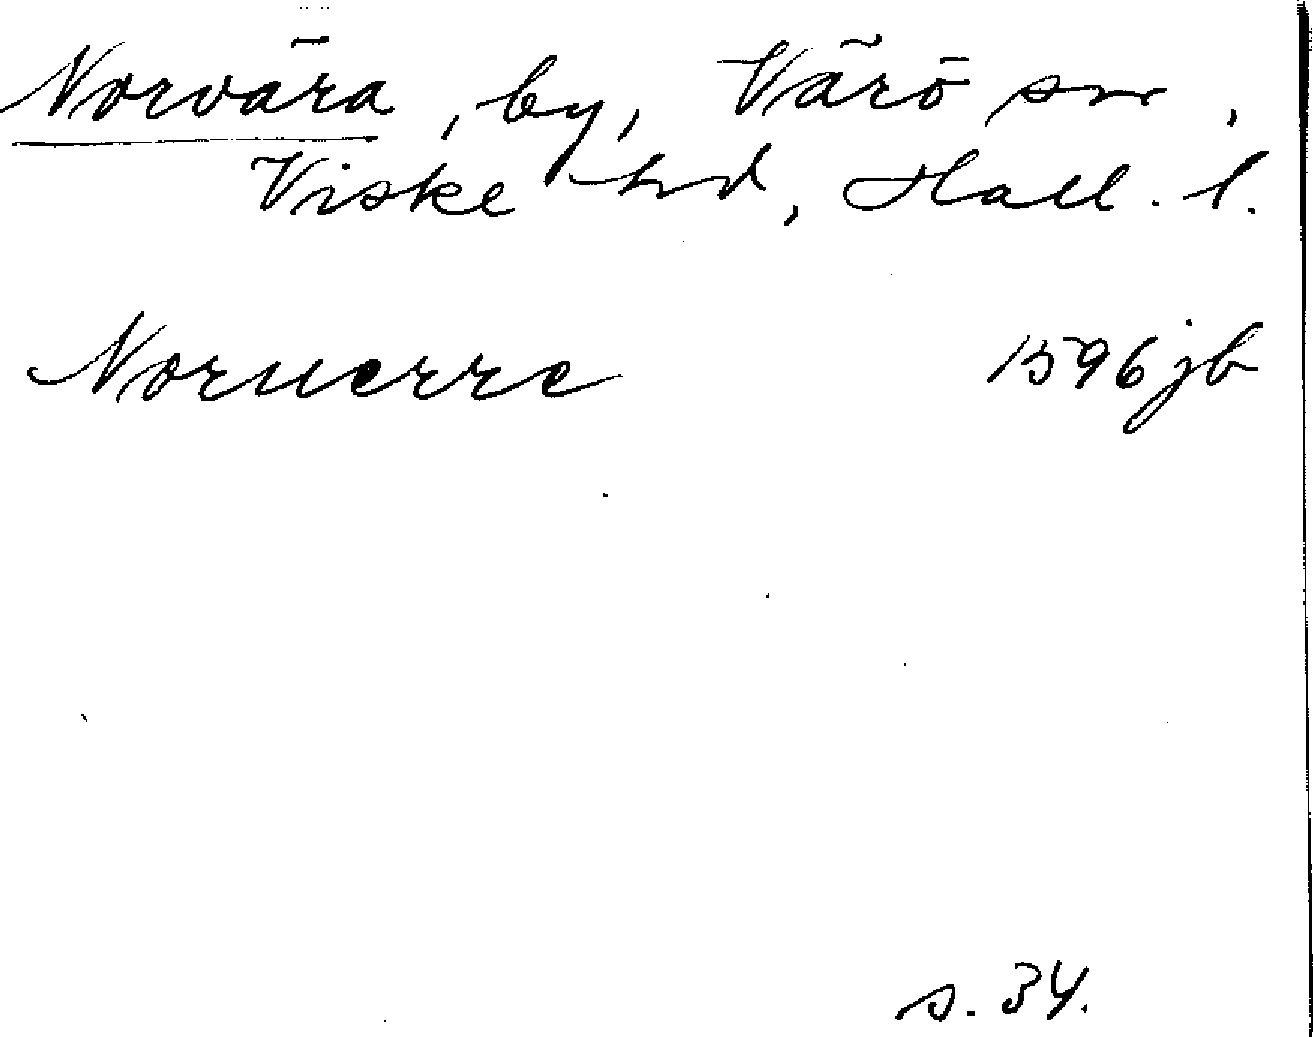 Norvära, by, Värö sn,
Viske hd, Hall. l.
Noruerre 1596 jb
s. 34.